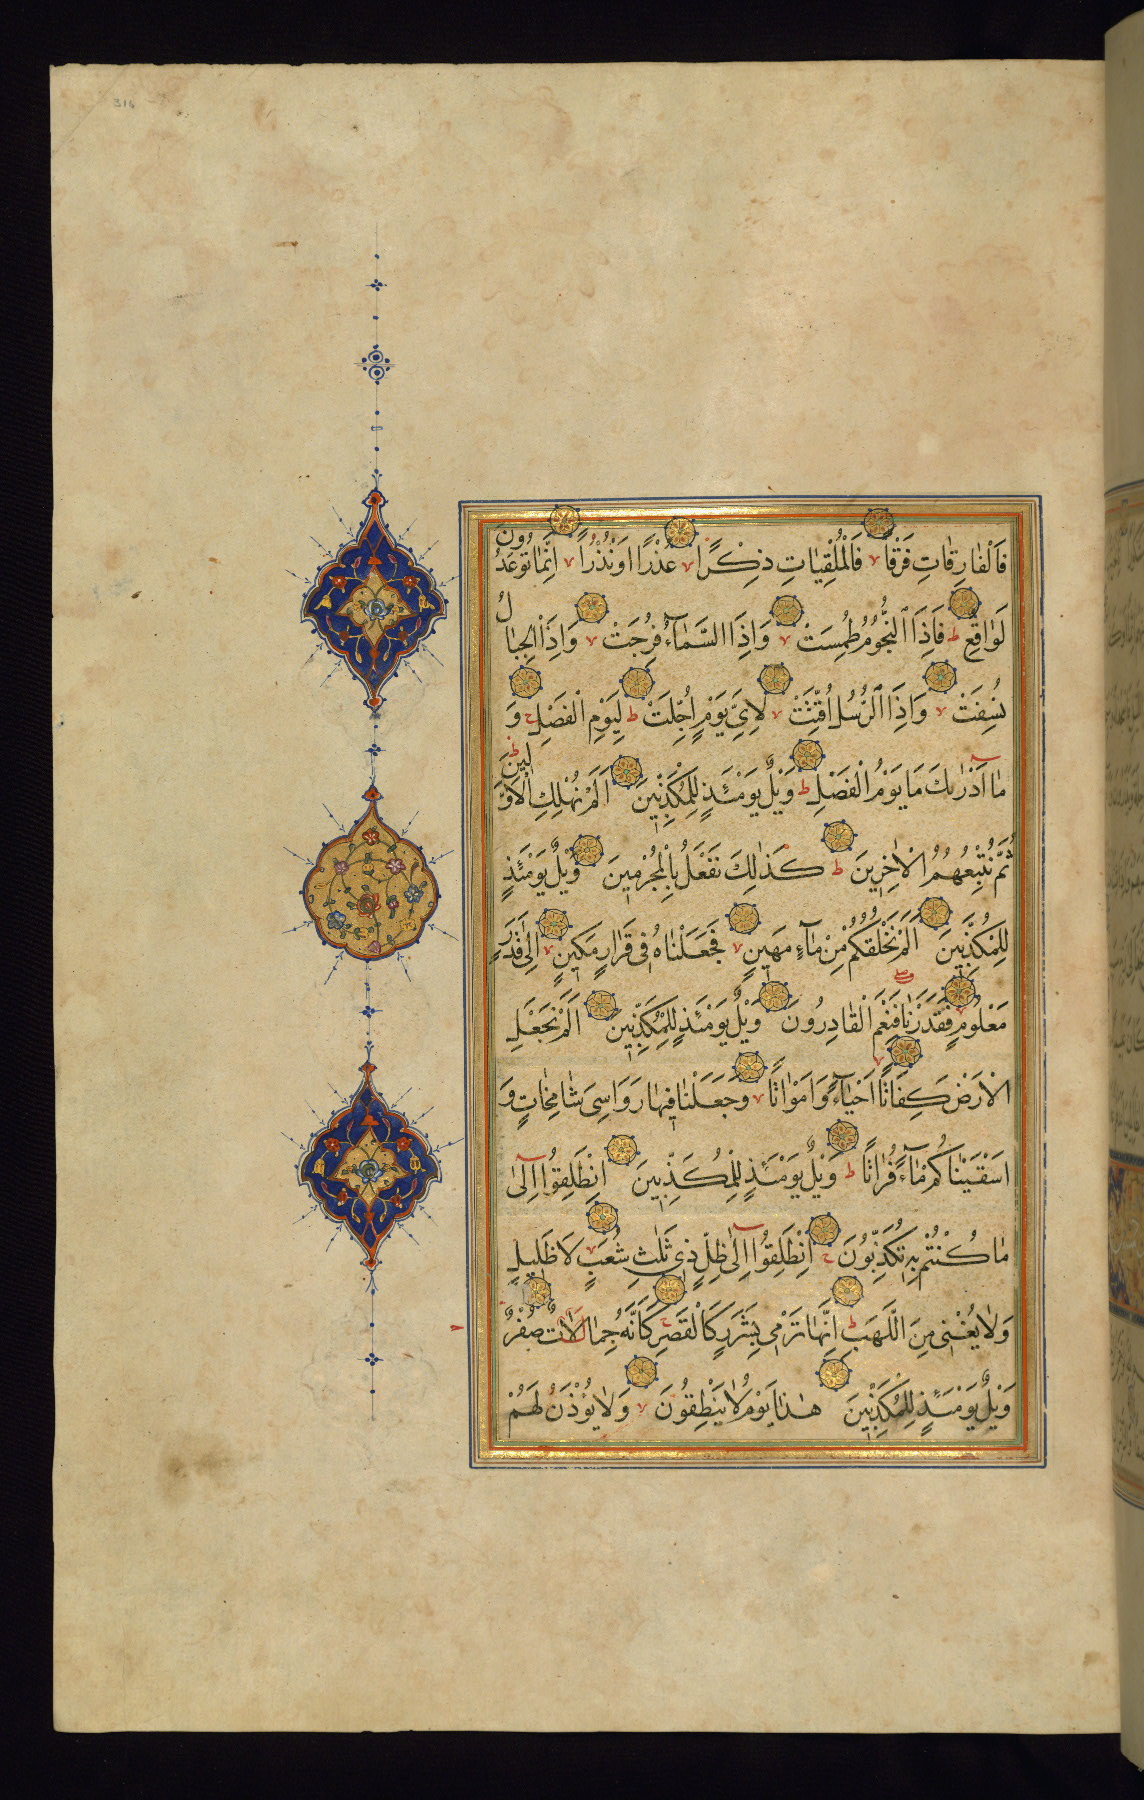 316
فَالْفَارِقَاتِ فَرْقًا فَالْمُلْقِيَاتِ ذِكْرًا عُذْرًا اَوْ نُذْرًا اِنَّمَا تُوعَدُونَ
لَوَاقِعٌ ط فَاِذَا النُّجُومُ طُمِسَتْ وَاِذَا السَّمَآءُ فُرِجَتْ وَاِذَا الْجِبَالُ
نُسِفَتْ وَاِذَا الرُّسُلُ اُقِّتَتْ لِاَيِّ يَوْمٍ اُجِّلَتْ ط لِيَوْمِ الْفَصْلِ ج وَ
مَا اَدْرٰىكَ مَا يَوْمُ الْفَصْلِ ط وَيْلٌ يَوْمَئِذٍ لِلْمُكَذِّبِينَ اَلَمْ نُهْلِكِ الْاَوَّلِينَ ط
ثُمَّ نُتْبِعُهُمُ الْاٰخِرِينَ ط كَذٰلِكَ نَفْعَلُ بِالْمُجْرِمِينَ وَيْلٌ يَوْمَئِذٍ
لِلْمُكَذِّبِينَ اَلَمْ نَخْلُقْكُمْ مِنْ مَآءٍ مَهِينٍ فَجَعَلْنَاهُ فِى قَرَارٍ مَكِينٍ اِلٰى قَدَرٍ
مَعْلُومٍ فَقَدَرْنَا فَنِعْمَ الْقَادِرُونَ وَيْلٌ يَوْمَئِذٍ لِلْمُكَذِّبِينَ اَلَمْ نَجْعَلِ
الْاَرْضَ كِفَاتًا اَحْيَآءً وَاَمْوَاتًا وَجَعَلْنَا فِيهَا رَوَاسِىَ شَامِخَاتٍ وَ
اَسْقَيْنَاكُمْ مَآءً فُرَاتًا ط وَيْلٌ يَوْمَئِذٍ لِلْمُكَذِّبِينَ اِنْطَلِقُوٓا اِلٰى
مَا كُنْتُمْ بِهِ تُكَذِّبُونَ ج اِنْطَلِقُوٓا اِلٰى ظِلٍّ ذِى ثَلٰثِ شُعَبٍ لَا ظَلِيلٍ
وَلَا يُغْنِى مِنَ اللَّهَبِ ط اِنَّهَا تَرْمِى بِشَرَرٍ كَالْقَصْرِ ج كَاَنَّهُ جِمَالَاتٌ صُفْرٌ
وَيْلٌ يَوْمَئِذٍ لِلْمُكَذِّبِينَ هٰذَا يَوْمُ لَا يَنْطِقُونَ وَلَا يُؤْذَنُ لَهُمْ